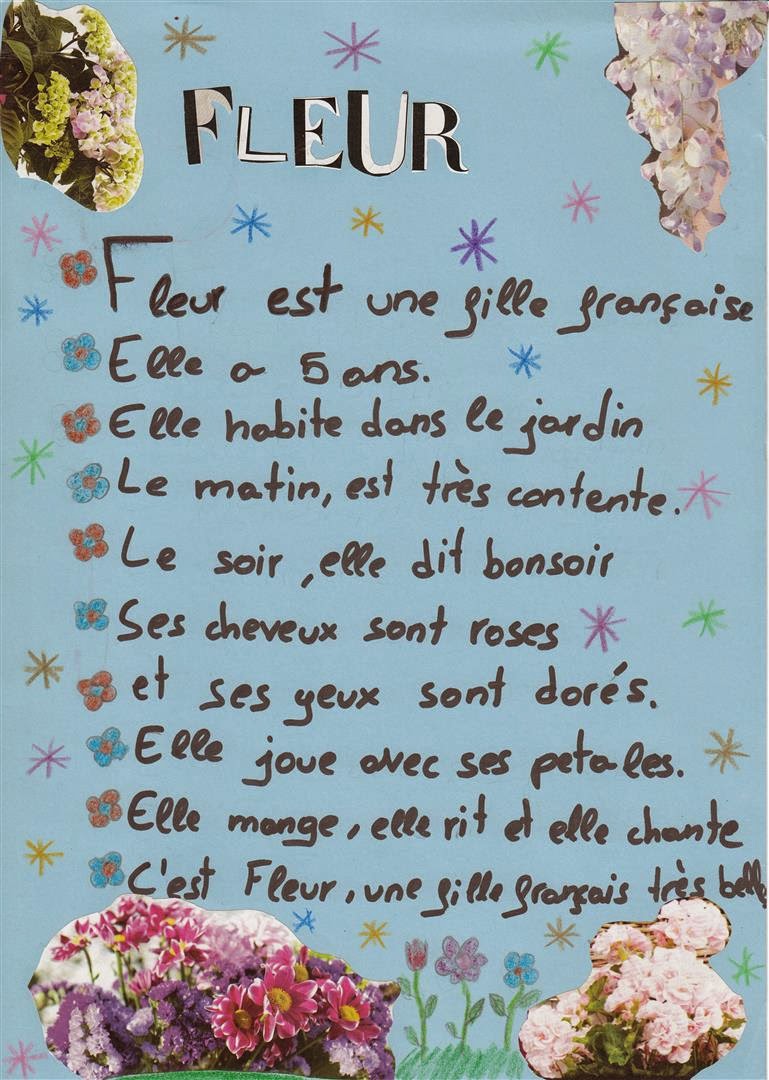 FLEUR
Fleur est une fille française
Elle a 5 ans.
Elle habite dans le jardin
Le matin, est très contente.
Le soir, elle dit bonsoir
Ses cheveux sont roses
et ses yeux sont dorés.
Elle joue avec ses petales.
Elle mange, elle rit et elle chante
C'est Fleur, une fille français très belle